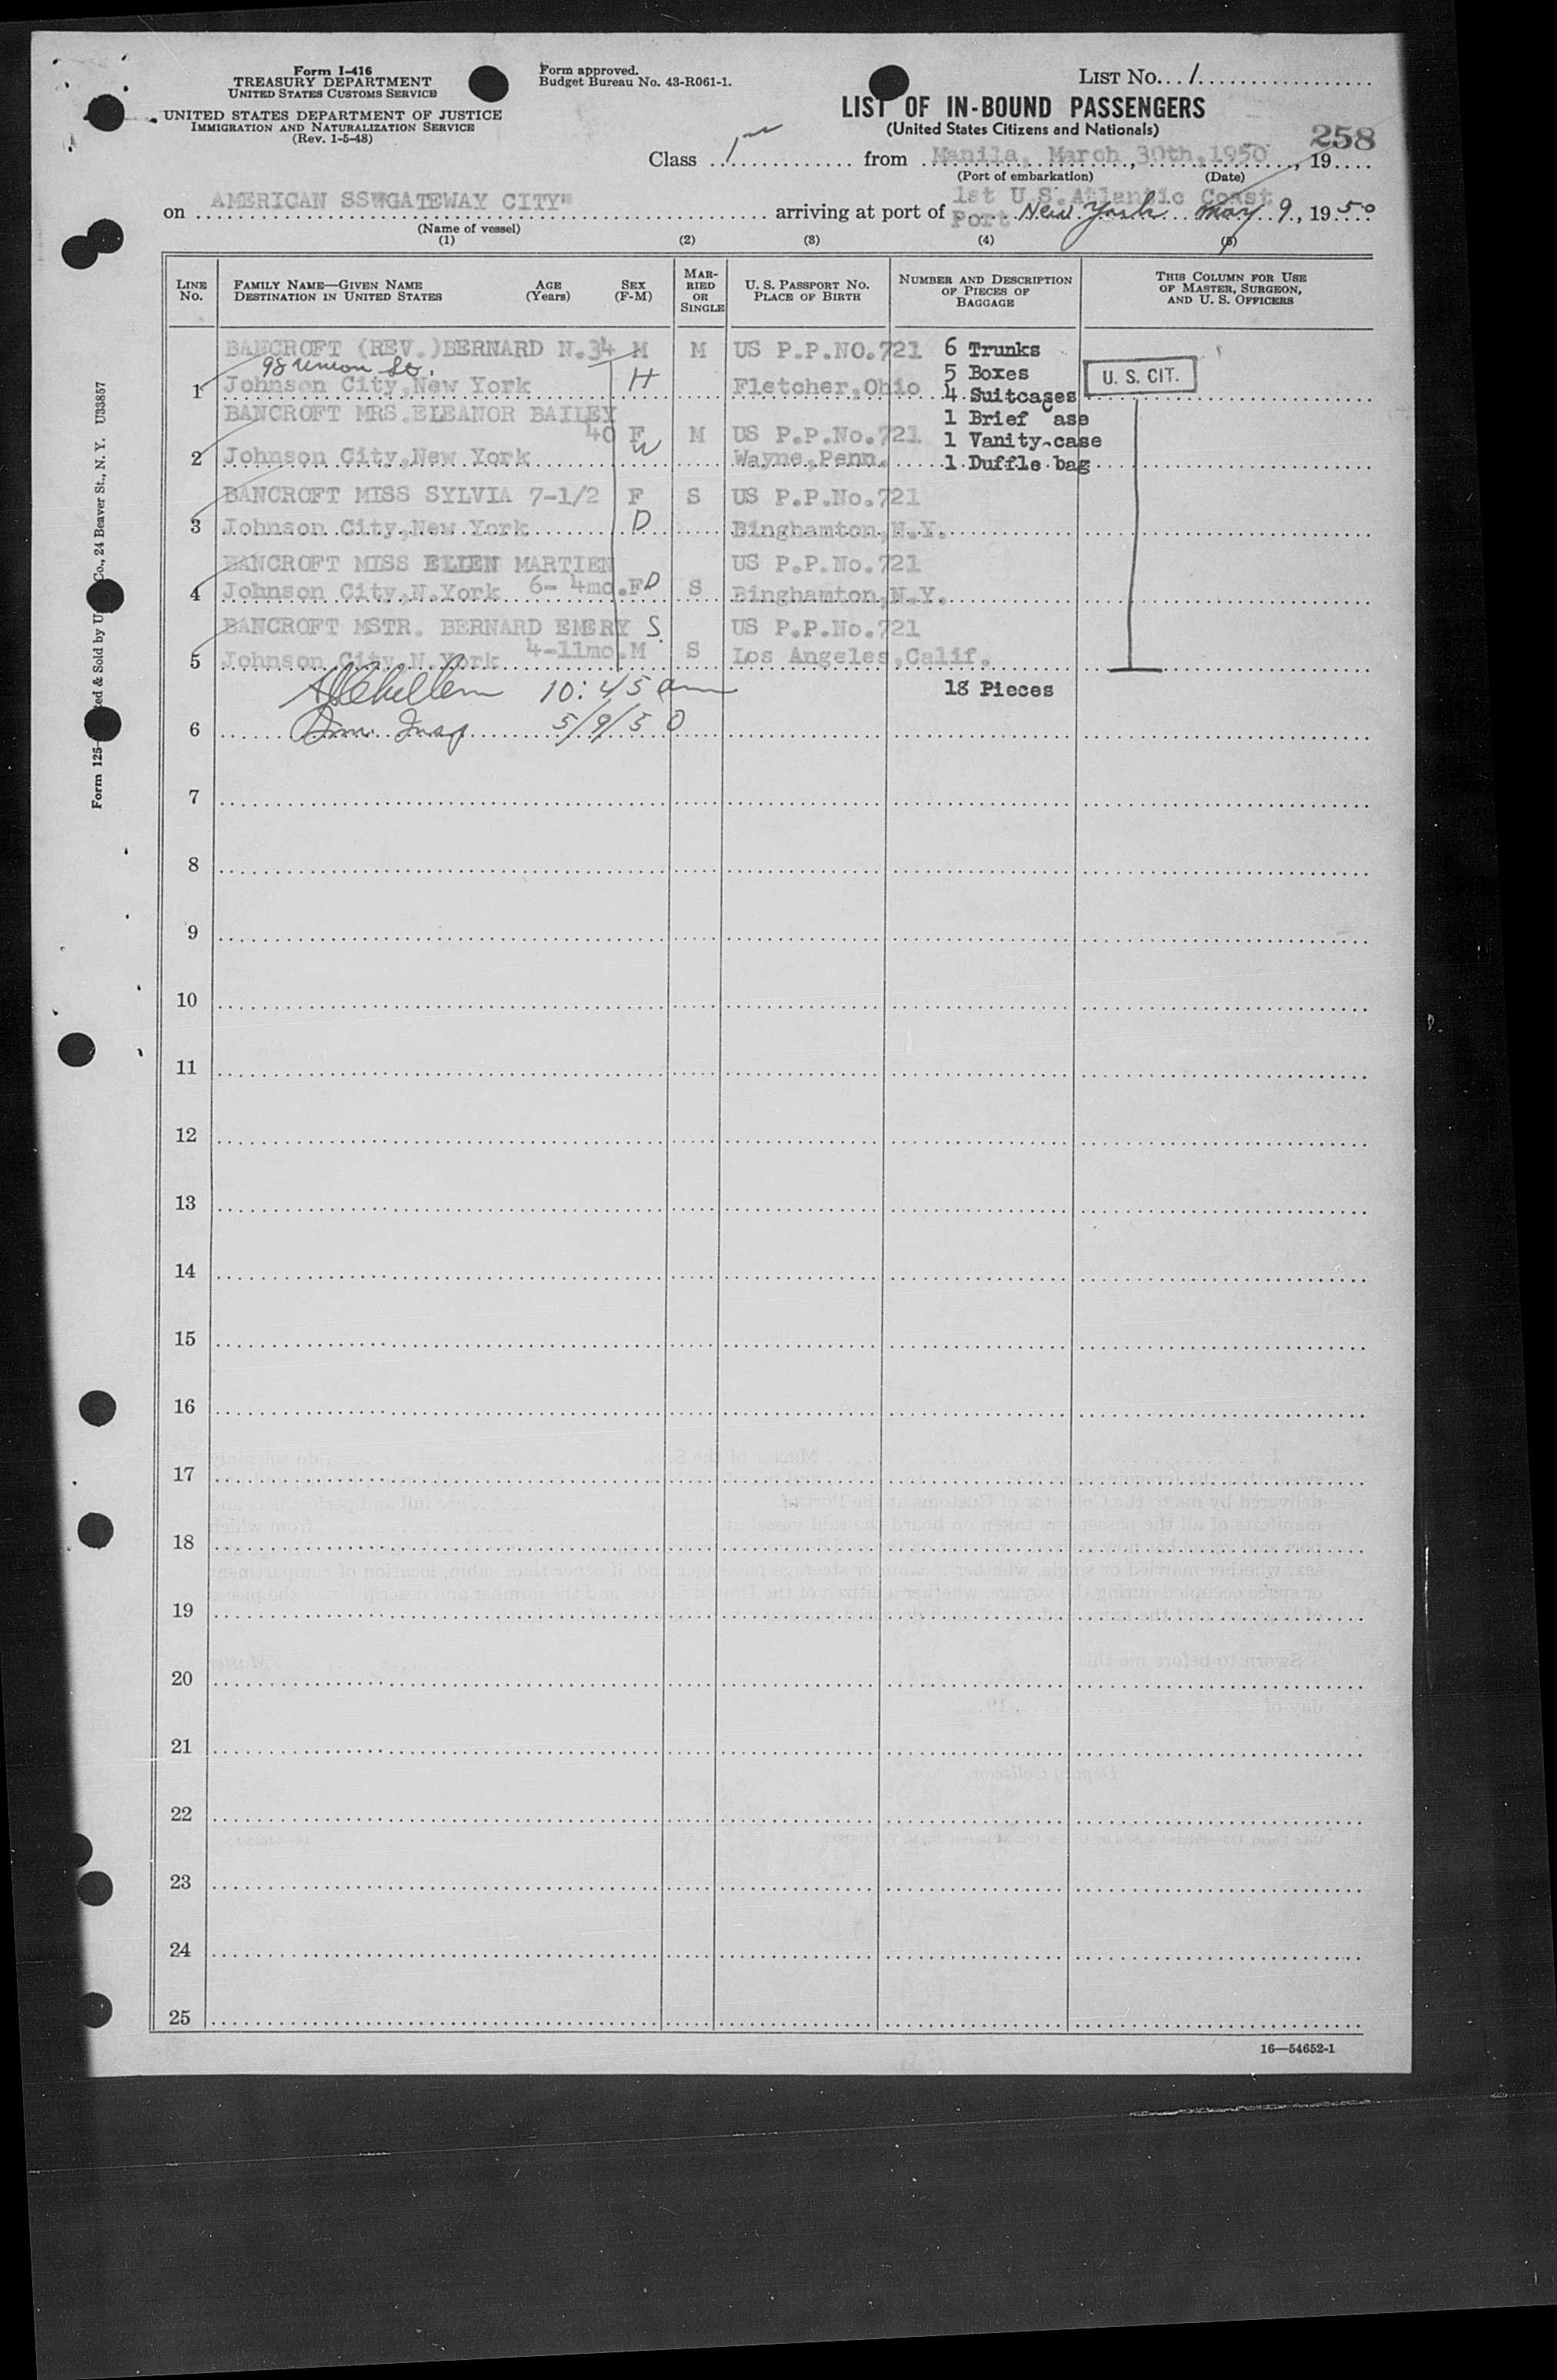 Form I-416
TREASURY DEPARTMENT
UNITED STATES CUSTOMS SERVICE
UNITED STATES DEPARTMENT OF JUSTICE
IMMIGRATION AND NATURALIZATION SERVICE
(Rev. 1-5-48)
Form approved.
Budget Bureau No. 43-R061-1.
LIST No. 1
LIST OF IN-BOUND PASSENGERS
(United States Citizens and Nationals)
258
Class 1 from Manila, March 30th, 1950, 19
(Port of embarkation) (Date)
on AMERICAN SS"GATEWAY CITY" arriving at port of 1st U S. Atlantic Coast Port New York May 9, 1950
(Name of vessel)
(1) (2) (3) (4) (5)
LINE No. FAMILY NAME—GIVEN NAME DESTINATION IN UNITED STATES AGE (Years) SEX (F-M) MARRIED OR SINGLE U. S. PASSPORT No. PLACE OF BIRTH NUMBER AND DESCRIPTION OF PIECES OF BAGGAGE THIS COLUMN FOR USE OF MASTER, SURGEON, AND U. S. OFFICERS
BANCROFT (REV.)BERNARD N.34 M M US P.P.NO.721 6 Trunks
98 Union St. 5 Boxes
1 Johnson City,New York H Fletcher,Ohio 4 Suitcases U. S. CIT.
BANCROFT MRS.ELEANOR BAILEY 1 Brief Case
40 F W M US P.P.No.721 1 Vanity-case
2 Johnson City,New York Wayne,Penn. 1 Duffle bag
BANCROFT MISS SYLVIA 7-1/2 F S US P.P.No.721
3 Johnson City,New York D Binghamton,N.Y.
BANCROFT MISS ELLEN MARTIEN US P.P.No.721
4 Johnson City,N.York 6- 4mo.F D S Binghamton,N.Y.
BANCROFT MSTR. BERNARD EMERY S. US P.P.No.721
5 Johnson City,N.York 4-11mo.M S Los Angeles,Calif.
10:45 am 18 Pieces
6 Imm. Insp 5/9/50
7
8
9
10
11
12
13
14
15
16
17
18
19
20
21
22
23
24
25
16—54652-1
Form 125 Co., 24 Beaver St., N. Y. U33857